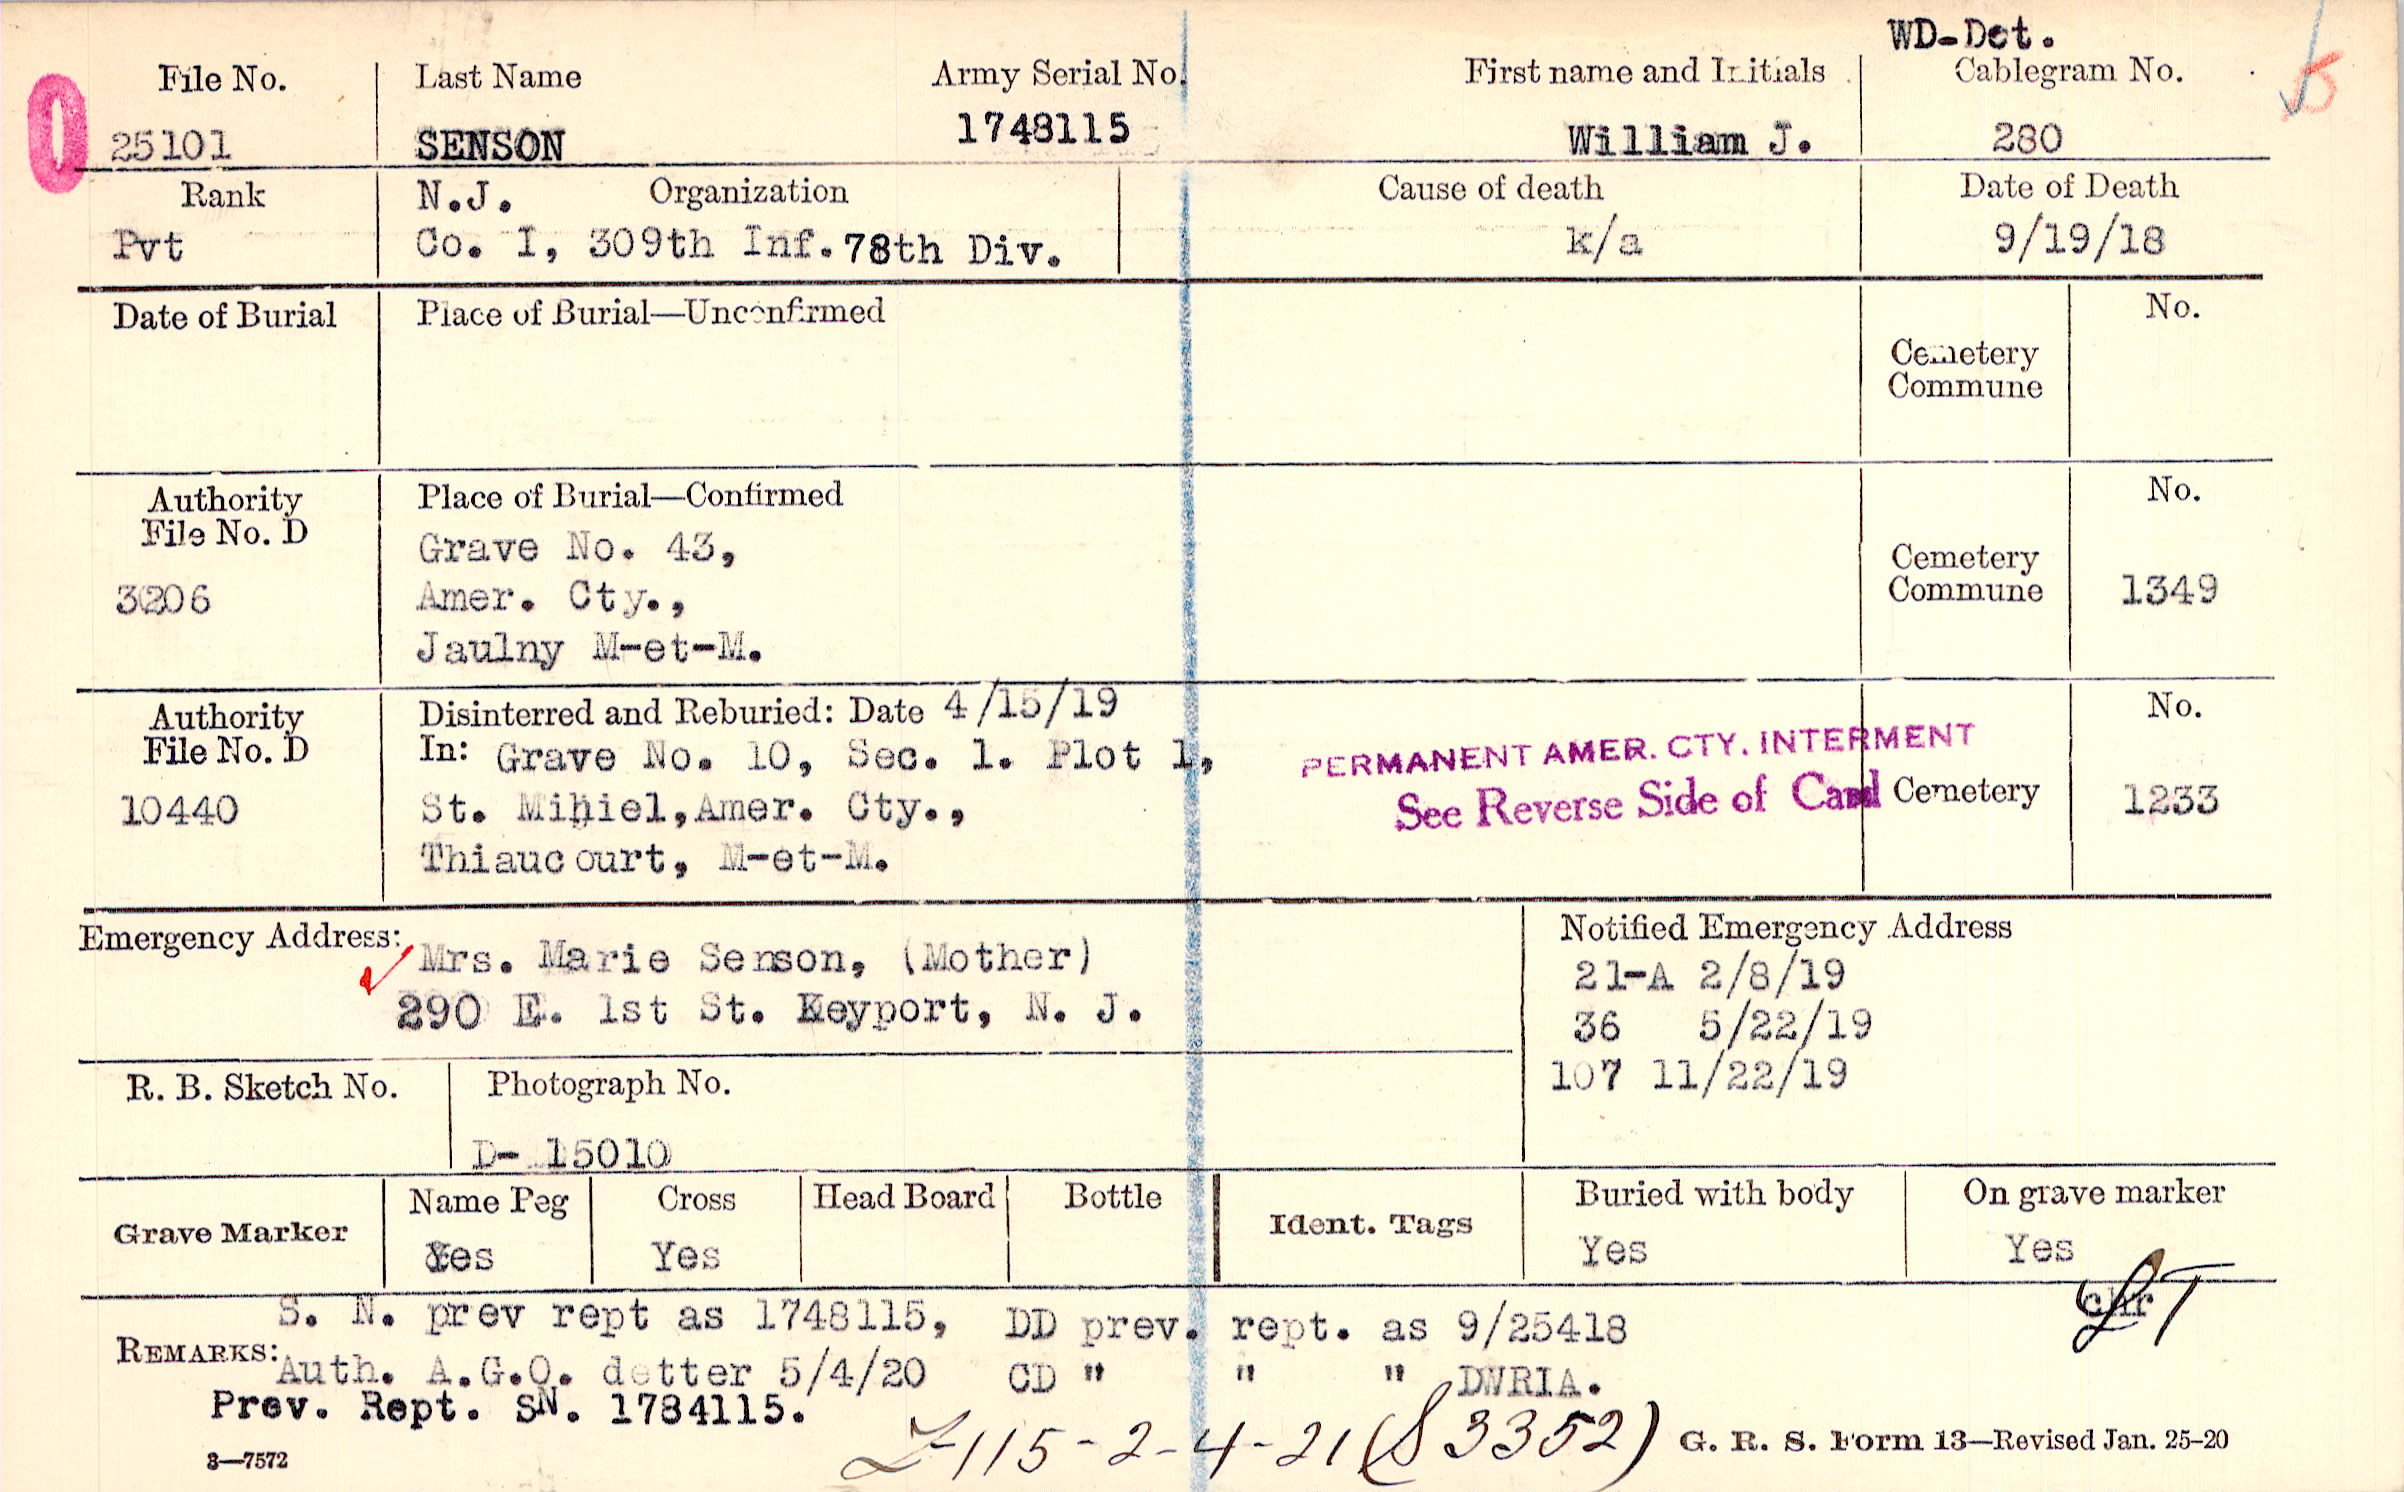 WD-Det.
File No. Last Name Army Serial No. First name and Initials Cablegram No.
0 25101 SENSON 1748115 William J. 280
Rank N.J. Organization Cause of death Date of Death
Pvt Co. I, 309th Inf. 78th Div. k/a 9/19/18
Date of Burial Place of Burial—Unconfirmed No.
Cemetery
Commune
Authority Place of Burial—Confirmed No.
File No. D
Grave No. 43,
Cemetery
3206 Amer. Cty., Commune 1349
Jaulny M-et-M.
Authority Disinterred and Reburied: Date 4/15/19 No.
File No. D In: Grave No. 10, Sec. 1. Plot 1, PERMANENT AMER. CTY. INTERMENT
10440 St. Mihiel, Amer. Cty., See Reverse Side of Card Cemetery 1233
Thiaucourt, M-et-M.
Emergency Address: Notified Emergency Address
Mrs. Marie Senson, (Mother) 21-A 2/8/19
290 E. 1st St. Keyport, N. J. 36 5/22/19
R. B. Sketch No. Photograph No. 107 11/22/19
D- 15010
Grave Marker Name Peg Cross Head Board Bottle Ident. Tags Buried with body On grave marker
Yes Yes Yes Yes
S. N. prev rept as 1748115, DD prev. rept. as 9/25418 chr
REMARKS: Auth. A.G.O. detter 5/4/20 CD " " " DWRIA.
Prev. Rept. SN. 1784115.
115-2-4-21 (S 3352) G. R. S. Form 13—Revised Jan. 25-20
3—7572